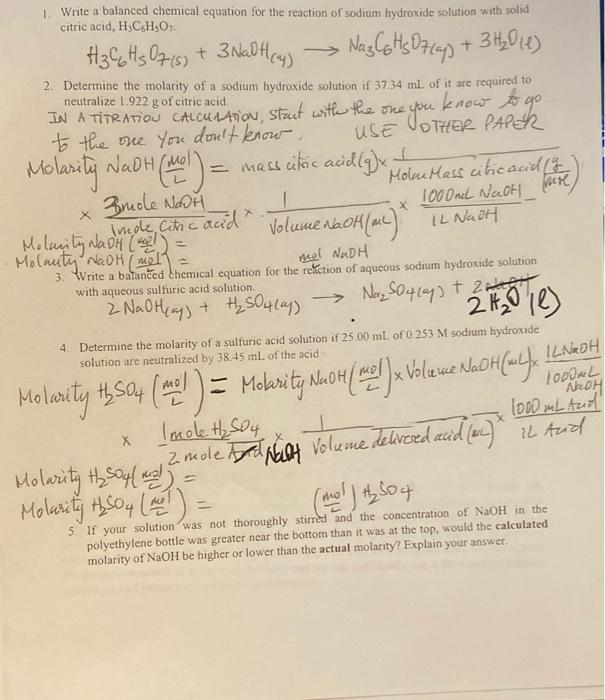 1. Write a balanced chemical equation for the reaction of sodium hydroxide solution with solid
citric acid, H₃C₆H₅O₇.
H₃C₆H₅O₇(s) + 3NaOH(aq) ⟶ Na₃C₆H₅O₇(aq) + 3H₂O(l)
2. Determine the molarity of a sodium hydroxide solution if 37.34 mL of it are required to
neutralize 1.922 g of citric acid.
IN A TITRATION CALCULATION, start with the one you know to go
to the one You don't know. USE OTHER PAPER
Molarity NaOH (mol/L) = mass citric acid (g) × 1/Molar Mass citric acid (g/mol)
× 3mole NaOH/1mole Citric acid × 1/Volume NaOH (mL) × 1000mL NaOH/1L NaOH
Molarity NaOH (mol/L) =
Molarity NaOH (mol/L) = mol NaOH
3. Write a balanced chemical equation for the reaction of aqueous sodium hydroxide solution
with aqueous sulfuric acid solution.
2NaOH(aq) + H₂SO₄(aq) ⟶ Na₂SO₄(aq) + 2H₂O(l)
4. Determine the molarity of a sulfuric acid solution if 25.00 mL of 0.253 M sodium hydroxide
solution are neutralized by 38.45 mL of the acid
Molarity H₂SO₄ (mol/L) = Molarity NaOH (mol/L) × Volume NaOH (mL) × 1LNaOH/1000mL NaOH
× 1mole H₂SO₄/2mole NaOH × 1/Volume delivered acid (mL) × 1000 mL Acid/1L Acid
Molarity H₂SO₄ (mol/L) =
Molarity H₂SO₄ (mol/L) = (mol/L) H₂SO₄
5. If your solution was not thoroughly stirred and the concentration of NaOH in the
polyethylene bottle was greater near the bottom than it was at the top, would the calculated
molarity of NaOH be higher or lower than the actual molarity? Explain your answer.